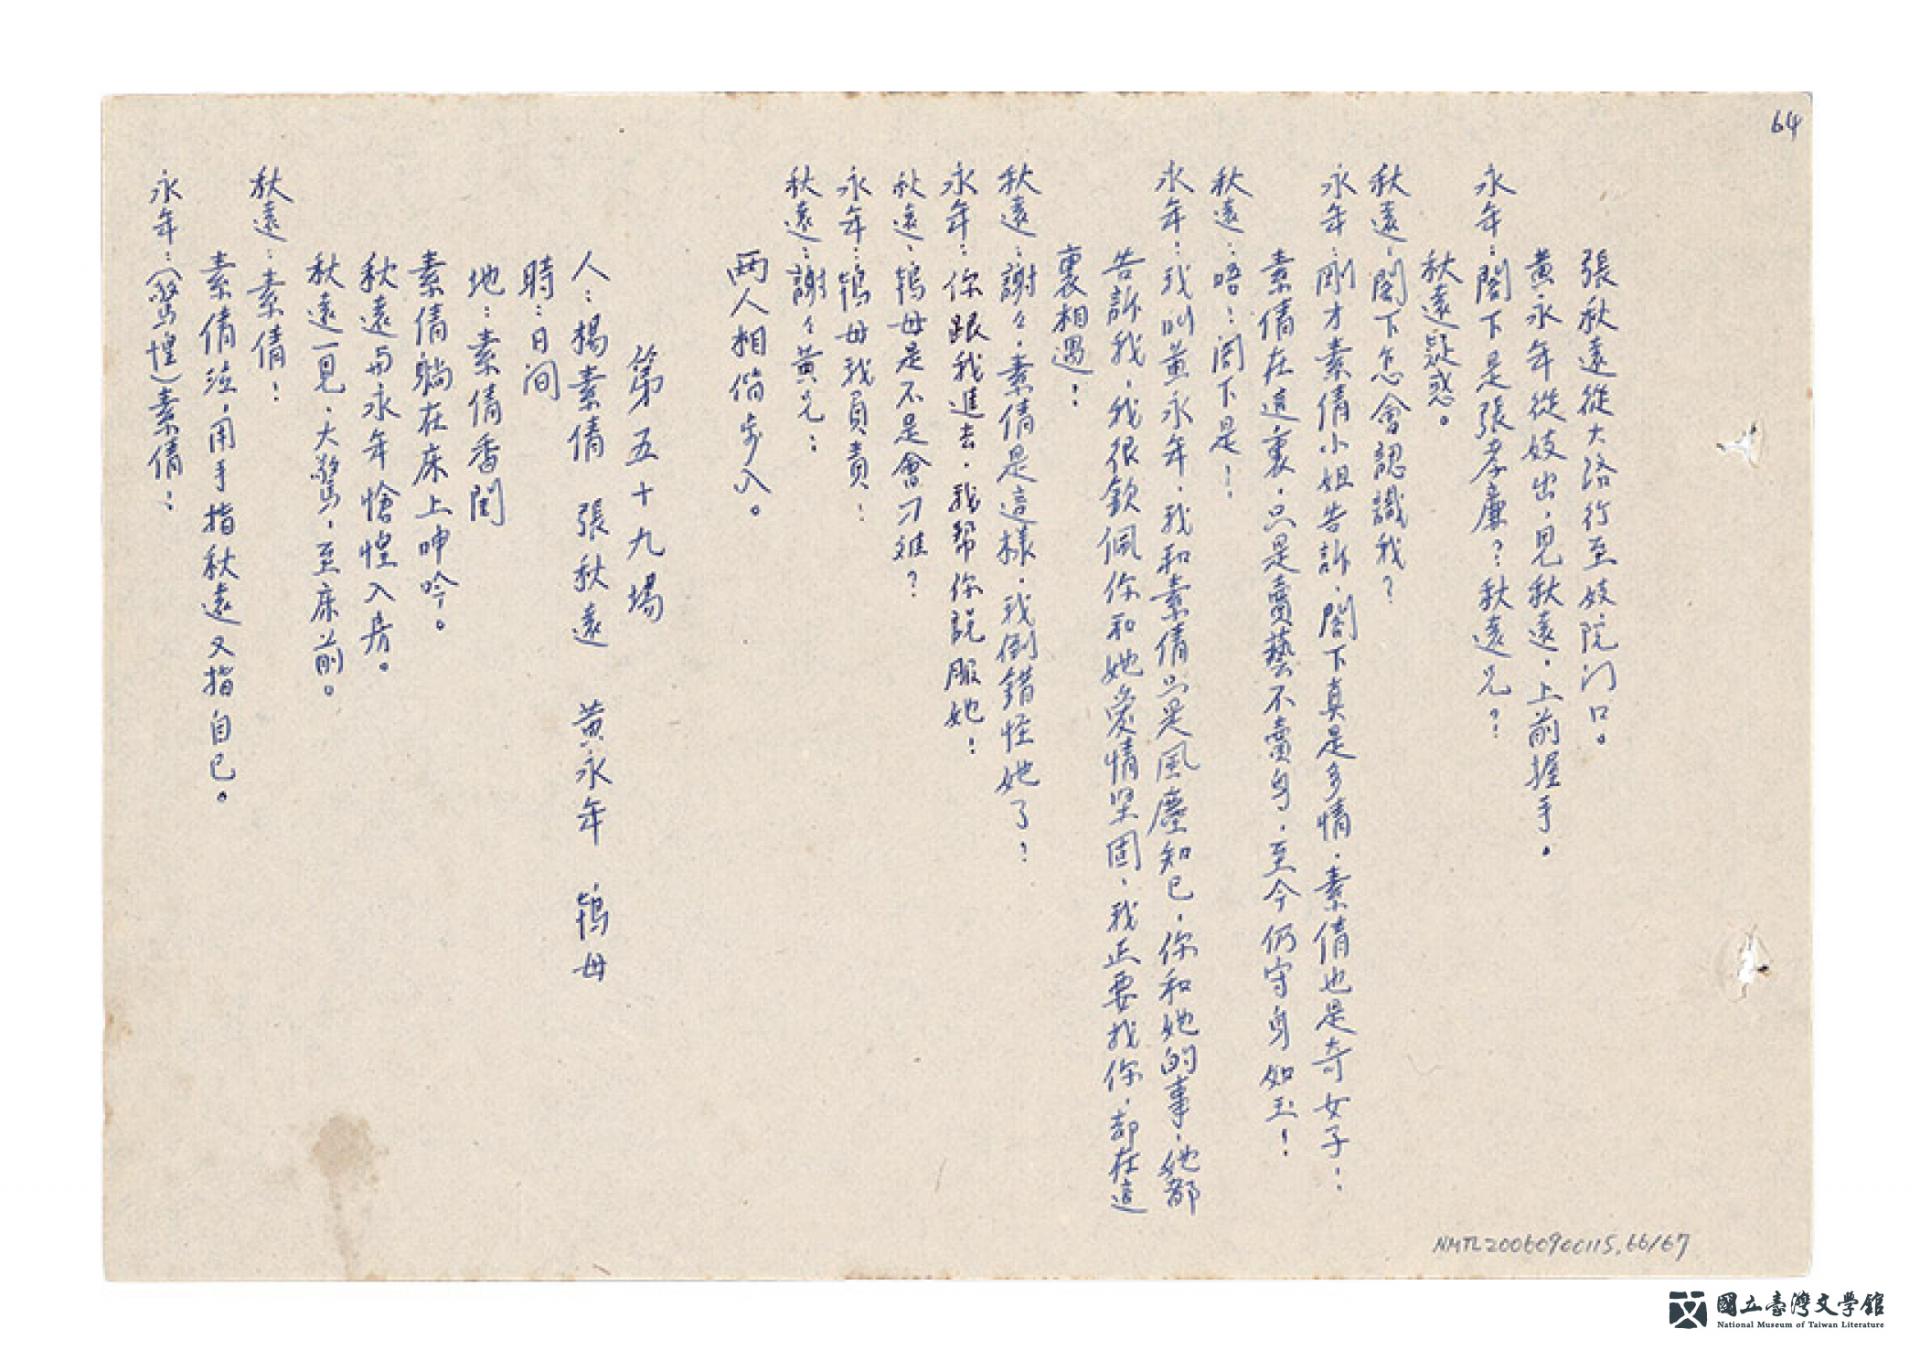 64
張秋遠從大路行至妓院门口。
黄永年從妓出，見秋遠，上前握手。
永年：閣下是張孝廉？秋遠兄？
秋遠疑惑。
秋遠：閣下怎會認識我？
永年：剛才素倩小姐告訴，閣下真是多情，素倩也是奇女子！
素倩在這裏，只是賣藝不賣身，至今仍守身如玉！
秋遠：唔！閣下是！
永年：我叫黄永年，我和素倩只是風塵知己，你和她的事，她都
告訴我，我很欽佩你和她愛情坚固，我正要找你，却在這
裏相遇！
秋遠：謝々，素倩是這樣，我倒錯怪她了！
永年：你跟我進去，我帮你説服她！
秋遠：鸨母是不是會刁难？
永年：鸨母我負責！
秋遠：謝々黄兄！
两人相偕步入。
第五十九場
人：楊素倩 張秋遠 黄永年 鸨母
時：日间
地：素倩香閨
素倩躺在床上呻吟。
秋遠与永年愴惶入房。
秋遠一見，大驚，至床前。
秋遠：素倩！
素倩泣，用手指秋遠又指自己。
永年：（驚惶）素倩！
NMTL20060900115,66/67
國立臺灣文學館
National Museum of Taiwan Literature